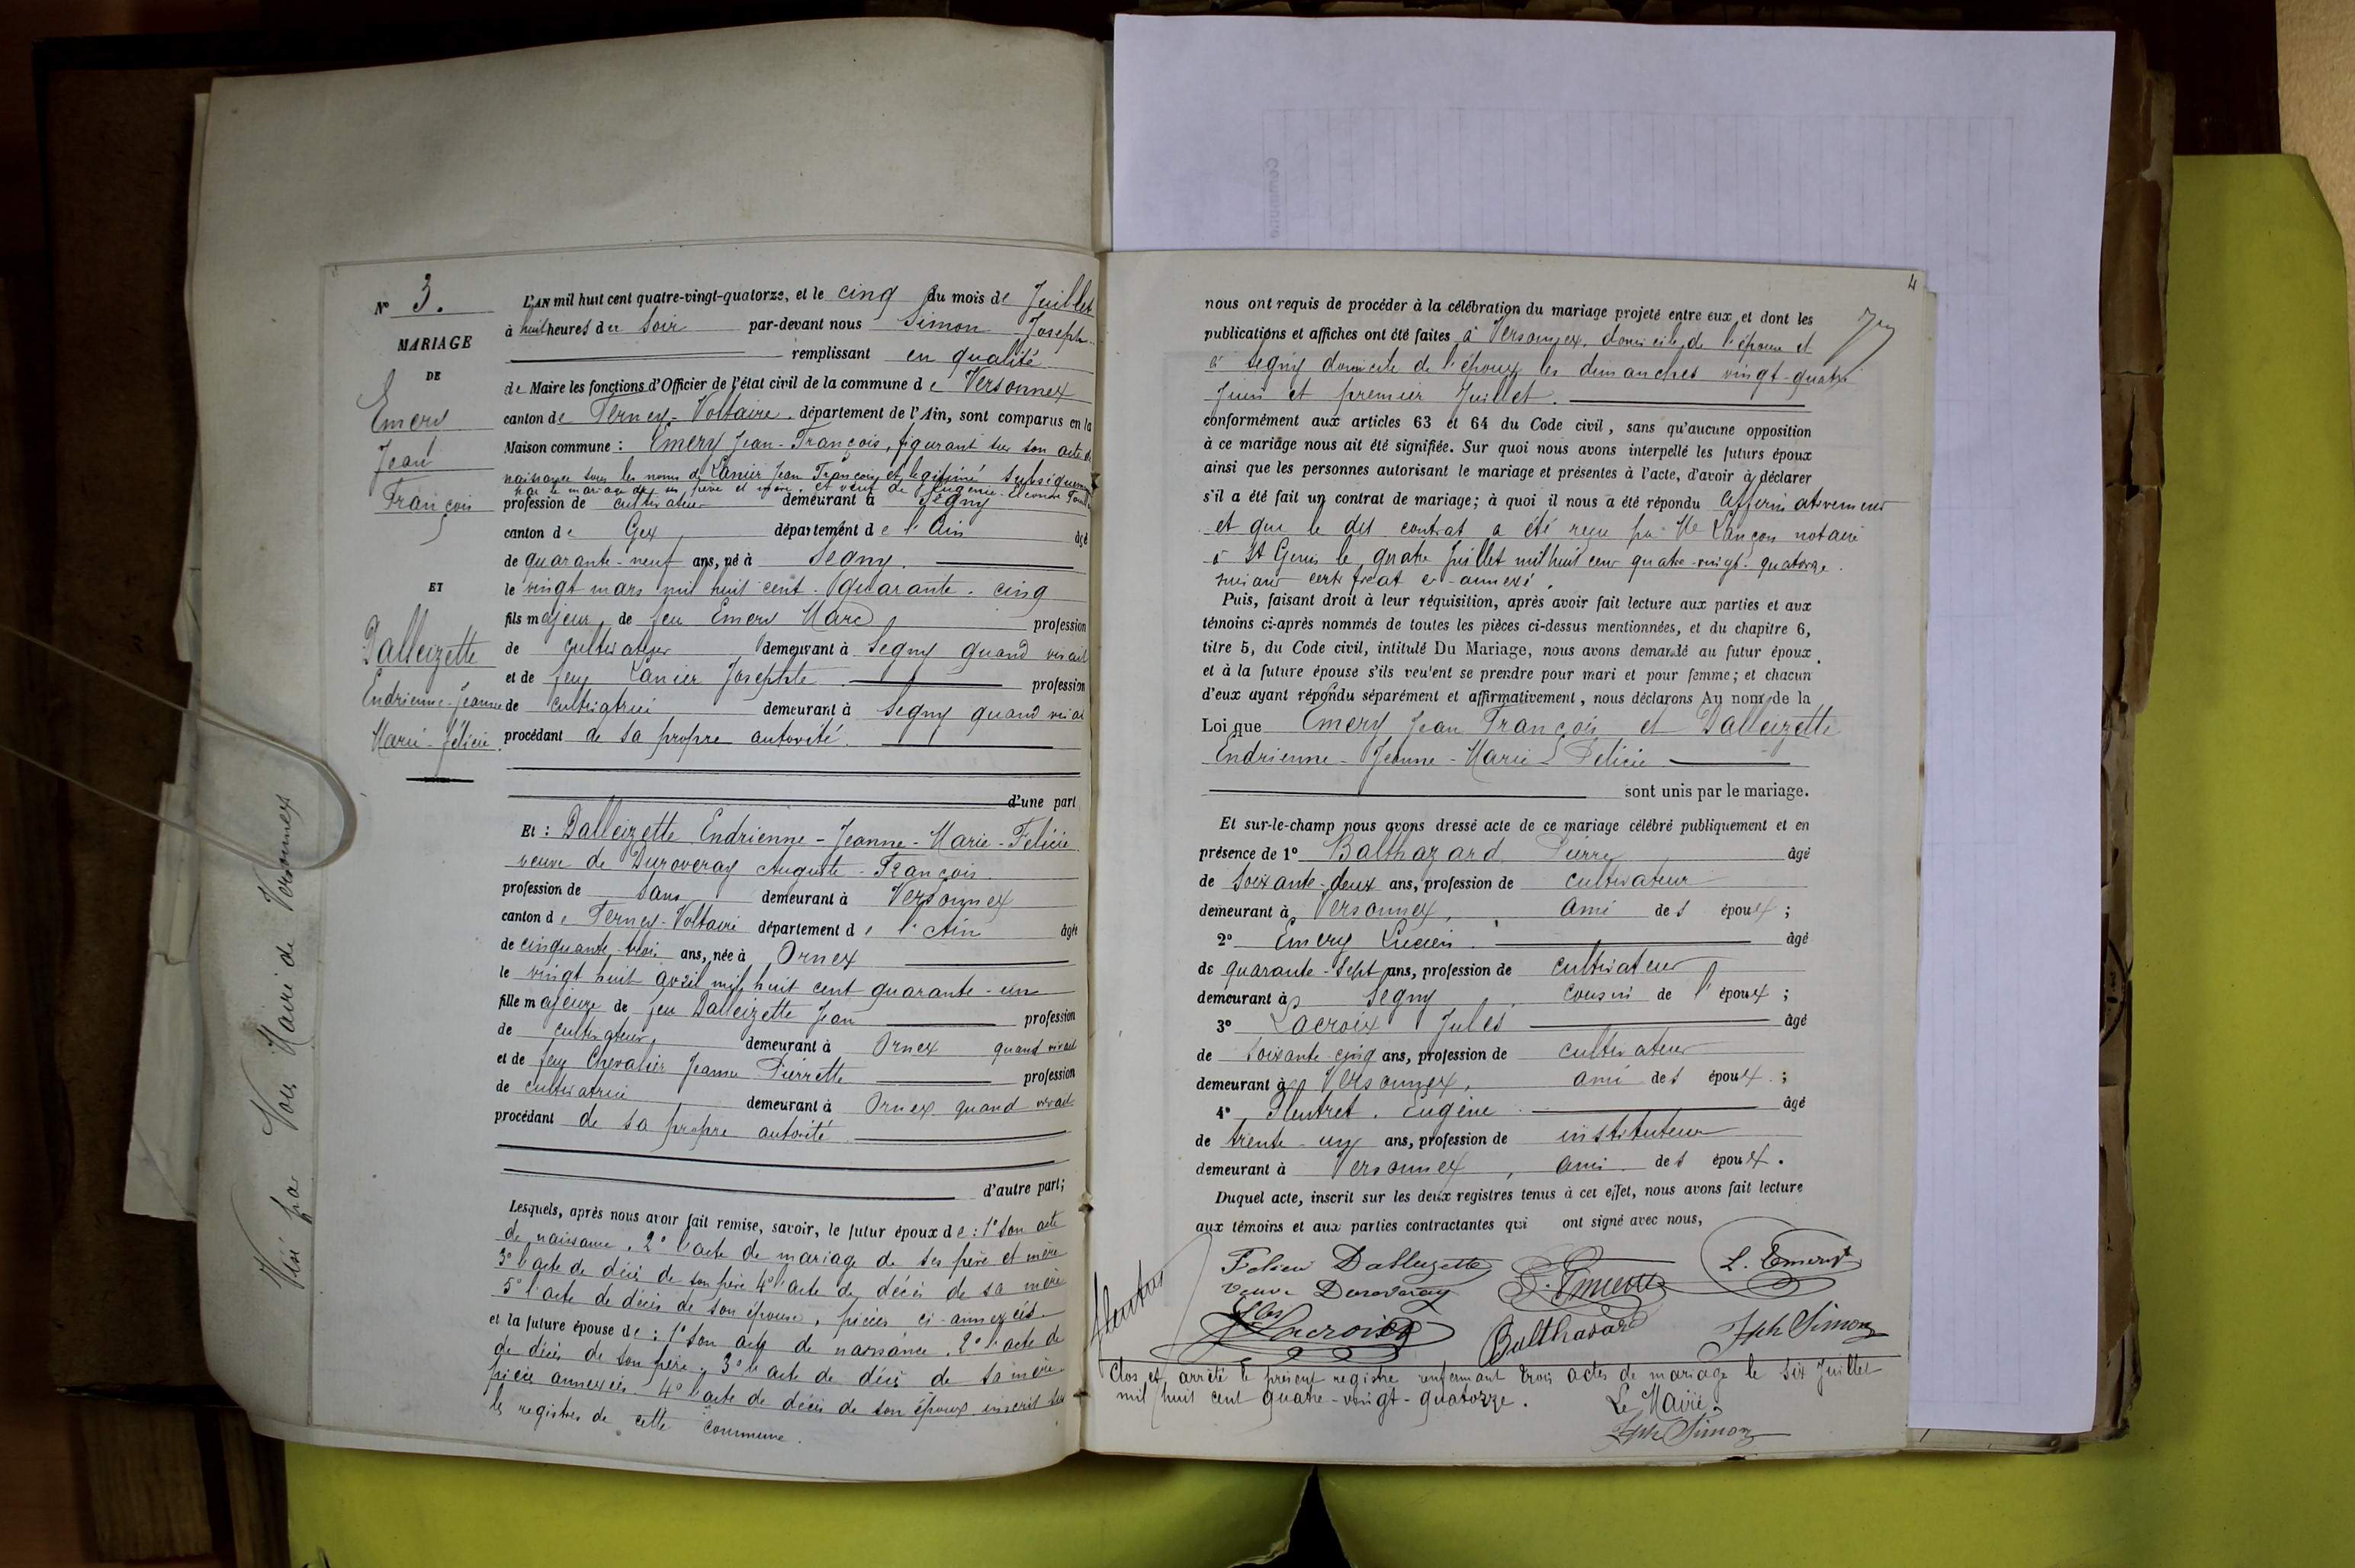 N° 3.
MARIAGE
DE
Emery
Jean
François
ET
Dalleizette
Endrienne-Jeanne
Marie-Félicie.
Visé par Nous Maire de Versonnex
L'AN mil huit cent quatre-vingt-quatorze, et le cinq du mois de Juillet
à huit heures du Soir par-devant nous Simon Joseph
remplissant en qualité
de Maire les fonctions d'Officier de l'état civil de la commune de Versonnex
canton de Ferney-Voltaire, département de l'Ain, sont comparus en la
Maison commune : Emery Jean-François, figurant sur son acte de
naissance sous les noms de Lanier Jean François et légitimé subséquemment
par le mariage de ses père et mère, et veuf de Eugénie-Eléonore
profession de cultivateur demeurant à Segny
canton de Gex département de l'Ain âgé
de quarante-neuf ans, né à Segny.
le vingt mars mil huit cent quarante-cinq
fils majeur de feu Emery Marc profession
de cultivateur demeurant à Segny quand vivait
et de feu Lanier Josephte profession
de cultivatrice demeurant à Segny quand vivait
procédant de sa propre autorité.
d'une part
Et : Dalleizette Endrienne-Jeanne-Marie-Félicie
veuve de Duroveray Auguste-François.
profession de sans demeurant à Versonnex
canton de Ferney-Voltaire département de l'Ain âgée
de cinquante-trois ans, née à Ornex
le vingt huit avril mil huit cent quarante-un
fille majeure de feu Dalleizette Jean profession
de cultivateur, demeurant à Ornex quand vivait
et de feu Chevalier Jeanne Pierrette profession
de cultivatrice demeurant à Ornex quand vivait
procédant de sa propre autorité
d'autre part;
Lesquels, après nous avoir fait remise, savoir, le futur époux de : 1° son acte
de naissance, 2° l'acte de mariage de ses père et mère
3° l'acte de décès de son père 4° l'acte de décès de sa mère
5° l'acte de décès de son épouse, pièces ci-annexées.
et la future épouse de : 1° son acte de naissance, 2° l'acte de
de décès de son père, 3° l'acte de décès de sa mère
pièces annexées. 4° l'acte de décès de son époux inscrit sur
les registres de cette commune.
4
nous ont requis de procéder à la célébration du mariage projeté entre eux, et dont les
publications et affiches ont été faites à Versonnex, domicile de l'épouse et
à Segny domicile de l'époux les dimanches vingt-quatre
Juin et premier Juillet.
conformément aux articles 63 et 64 du Code civil, sans qu'aucune opposition
à ce mariage nous ait été signifiée. Sur quoi nous avons interpellé les futurs époux
ainsi que les personnes autorisant le mariage et présentes à l'acte, d'avoir à déclarer
s'il a été fait un contrat de mariage; à quoi il nous a été répondu affirmativement
et que le dit contrat a été reçu par Me Lançon notaire
à St Genis le quatre Juillet mil huit cent quatre-vingt-quatorze.
suivant certificat ci-annexé.
Puis, faisant droit à leur réquisition, après avoir fait lecture aux parties et aux
témoins ci-après nommés de toutes les pièces ci-dessus mentionnées, et du chapitre 6,
titre 5, du Code civil, intitulé Du Mariage, nous avons demandé au futur époux
et à la future épouse s'ils veulent se prendre pour mari et pour femme; et chacun
d'eux ayant répondu séparément et affirmativement, nous déclarons Au nom de la
Loi que Emery Jean François et Dalleizette
Endrienne-Jeanne-Marie-Félicie
sont unis par le mariage.
Et sur-le-champ nous avons dressé acte de ce mariage célébré publiquement et en
présence de 1° Balthazard Pierre âgé
de soixante-deux ans, profession de cultivateur
demeurant à Versonnex, ami des époux ;
2° Emery Lucien. âgé
de quarante-sept ans, profession de cultivateur
demeurant à Segny, cousin de l'époux ;
3° Lacroix Jules âgé
de soixante-cinq ans, profession de cultivateur
demeurant à Versonnex, ami des époux ;
4° Fleutret. Eugène âgé
de trente-un ans, profession de instituteur
demeurant à Versonnex, ami des époux.
Duquel acte, inscrit sur les deux registres tenus à cet effet, nous avons fait lecture
aux témoins et aux parties contractantes qui ont signé avec nous,
Félicie Dalleizette
veuve Duroveray
L. Emery
Lacroix
Balthazard
Jph Simon
Clos et arrêté le présent registre renfermant trois actes de mariage le six Juillet
mil huit cent quatre-vingt-quatorze.
Le Maire,
Jph Simon